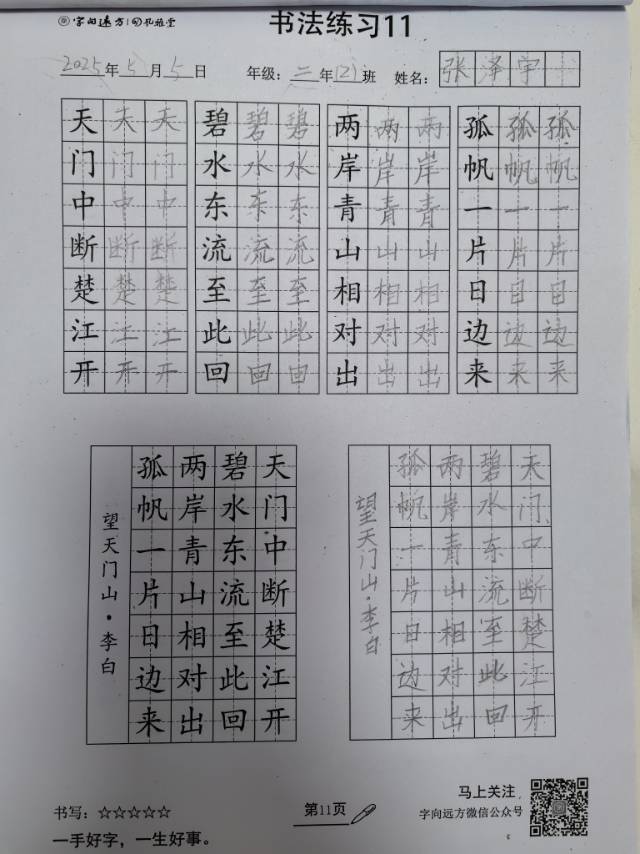 字向远方 孔雅堂
书法练习11
2025年5月5日 年级：二年(2)班 姓名：张泽宇
天天天 碧碧碧 两两两 孤孤孤
门门门 水水水 岸岸岸 帆帆帆
中中中 东东东 青青青 一一一
断断断 流流流 山山山 片片片
楚楚楚 至至至 相相相 日日日
江江江 此此此 对对对 边边边
开开开 回回回 出出出 来来来
天门中断楚江开
碧水东流至此回
两岸青山相对出
孤帆一片日边来
望天门山·李白
天门中断楚江开
碧水东流至此回
两岸青山相对出
孤帆一片日边来
望天门山·李白
书写：☆☆☆☆☆
一手好字，一生好事。
第11页
马上关注
字向远方微信公众号